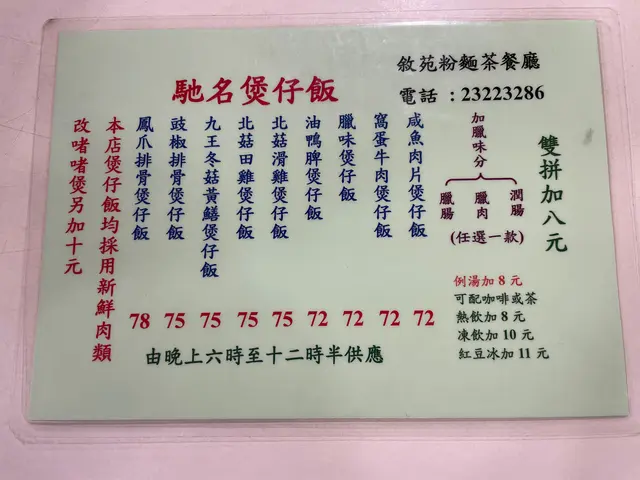 敘苑粉麵茶餐廳
電話：23223286
馳名煲仔飯
雙拼加八元
加臘味分
潤腸
臘肉
臘腸
(任選一款)
咸魚肉片煲仔飯 72
窩蛋牛肉煲仔飯 72
臘味煲仔飯 72
油鴨脾煲仔飯 72
北菇滑雞煲仔飯 75
北菇田雞煲仔飯 75
九王冬菇黃鱔煲仔飯 75
豉椒排骨煲仔飯 75
鳳爪排骨煲仔飯 78
本店煲仔飯均採用新鮮肉類
改啫啫煲另加十元
例湯加 8 元
可配咖啡或茶
熱飲加 8 元
凍飲加 10 元
紅豆冰加 11 元
由晚上六時至十二時半供應